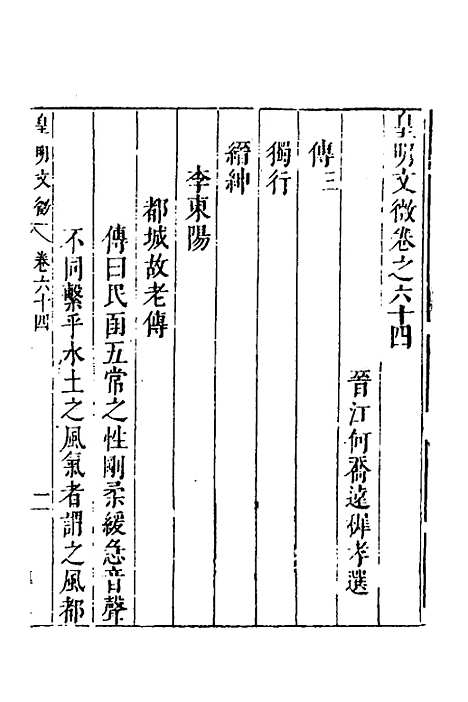 皇明文徵卷之六十四
晉江何喬遠穉孝選
傳三
獨行
縉紳
李東陽
都城故老傳
傳曰民函五常之性剛柔緩急音聲
不同繫乎水土之風氣者謂之風都
皇明文徵 卷六十四 二